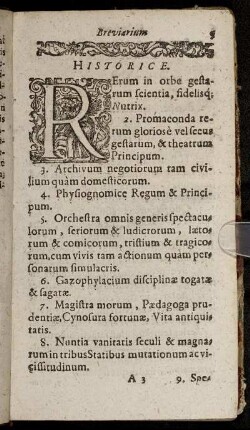 Breviarium 5
HISTORICE.
RErum in orbe gesta-
rum scientia, fidelisq;
Nutrix.
2. Promaconda re-
rum gloriosè vel secus
gestarum, & theatrum
Principum.
3. Archivum negotiorum tam civi-
lium quàm domesticorum.
4. Physiognomice Regum & Princi-
pum.
5. Orchestra omnis generis spectacu-
lorum, seriorum & ludicrorum, læto-
rum & comicorum, tristium & tragico-
rum, cum vivis tam actionum quàm per-
sonarum simulacris.
6. Gazophylacium disciplinæ togatæ
& sagatæ.
7. Magistra morum, Pædagoga pru-
dentiæ, Cynosura fortunæ, Vita antiqui-
tatis.
8. Nuntia vanitatis seculi & magna-
rum in tribus Statibus mutationum ac vi-
cissitudinum.
A 3 9. Spe-